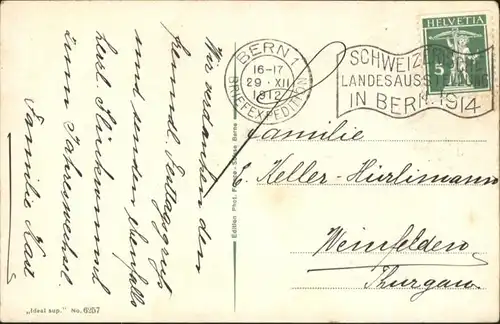 Wir verdanken den
freundl. Festtagsgruß
und senden ebenfalls
herzl. Glückwunsch
zum Jahreswechsel.
Familie
„Ideal sup." No. 6257
Edition Phot. Berne
BERN 1
16-17
29. XII
1912
BRIEFEXPEDITION
SCHWEIZ.
LANDESAUSSTELLUNG
IN BERN 1914
HELVETIA
5
Familie
E. Keller-Hürlimann
Weinfelden
Thurgau.